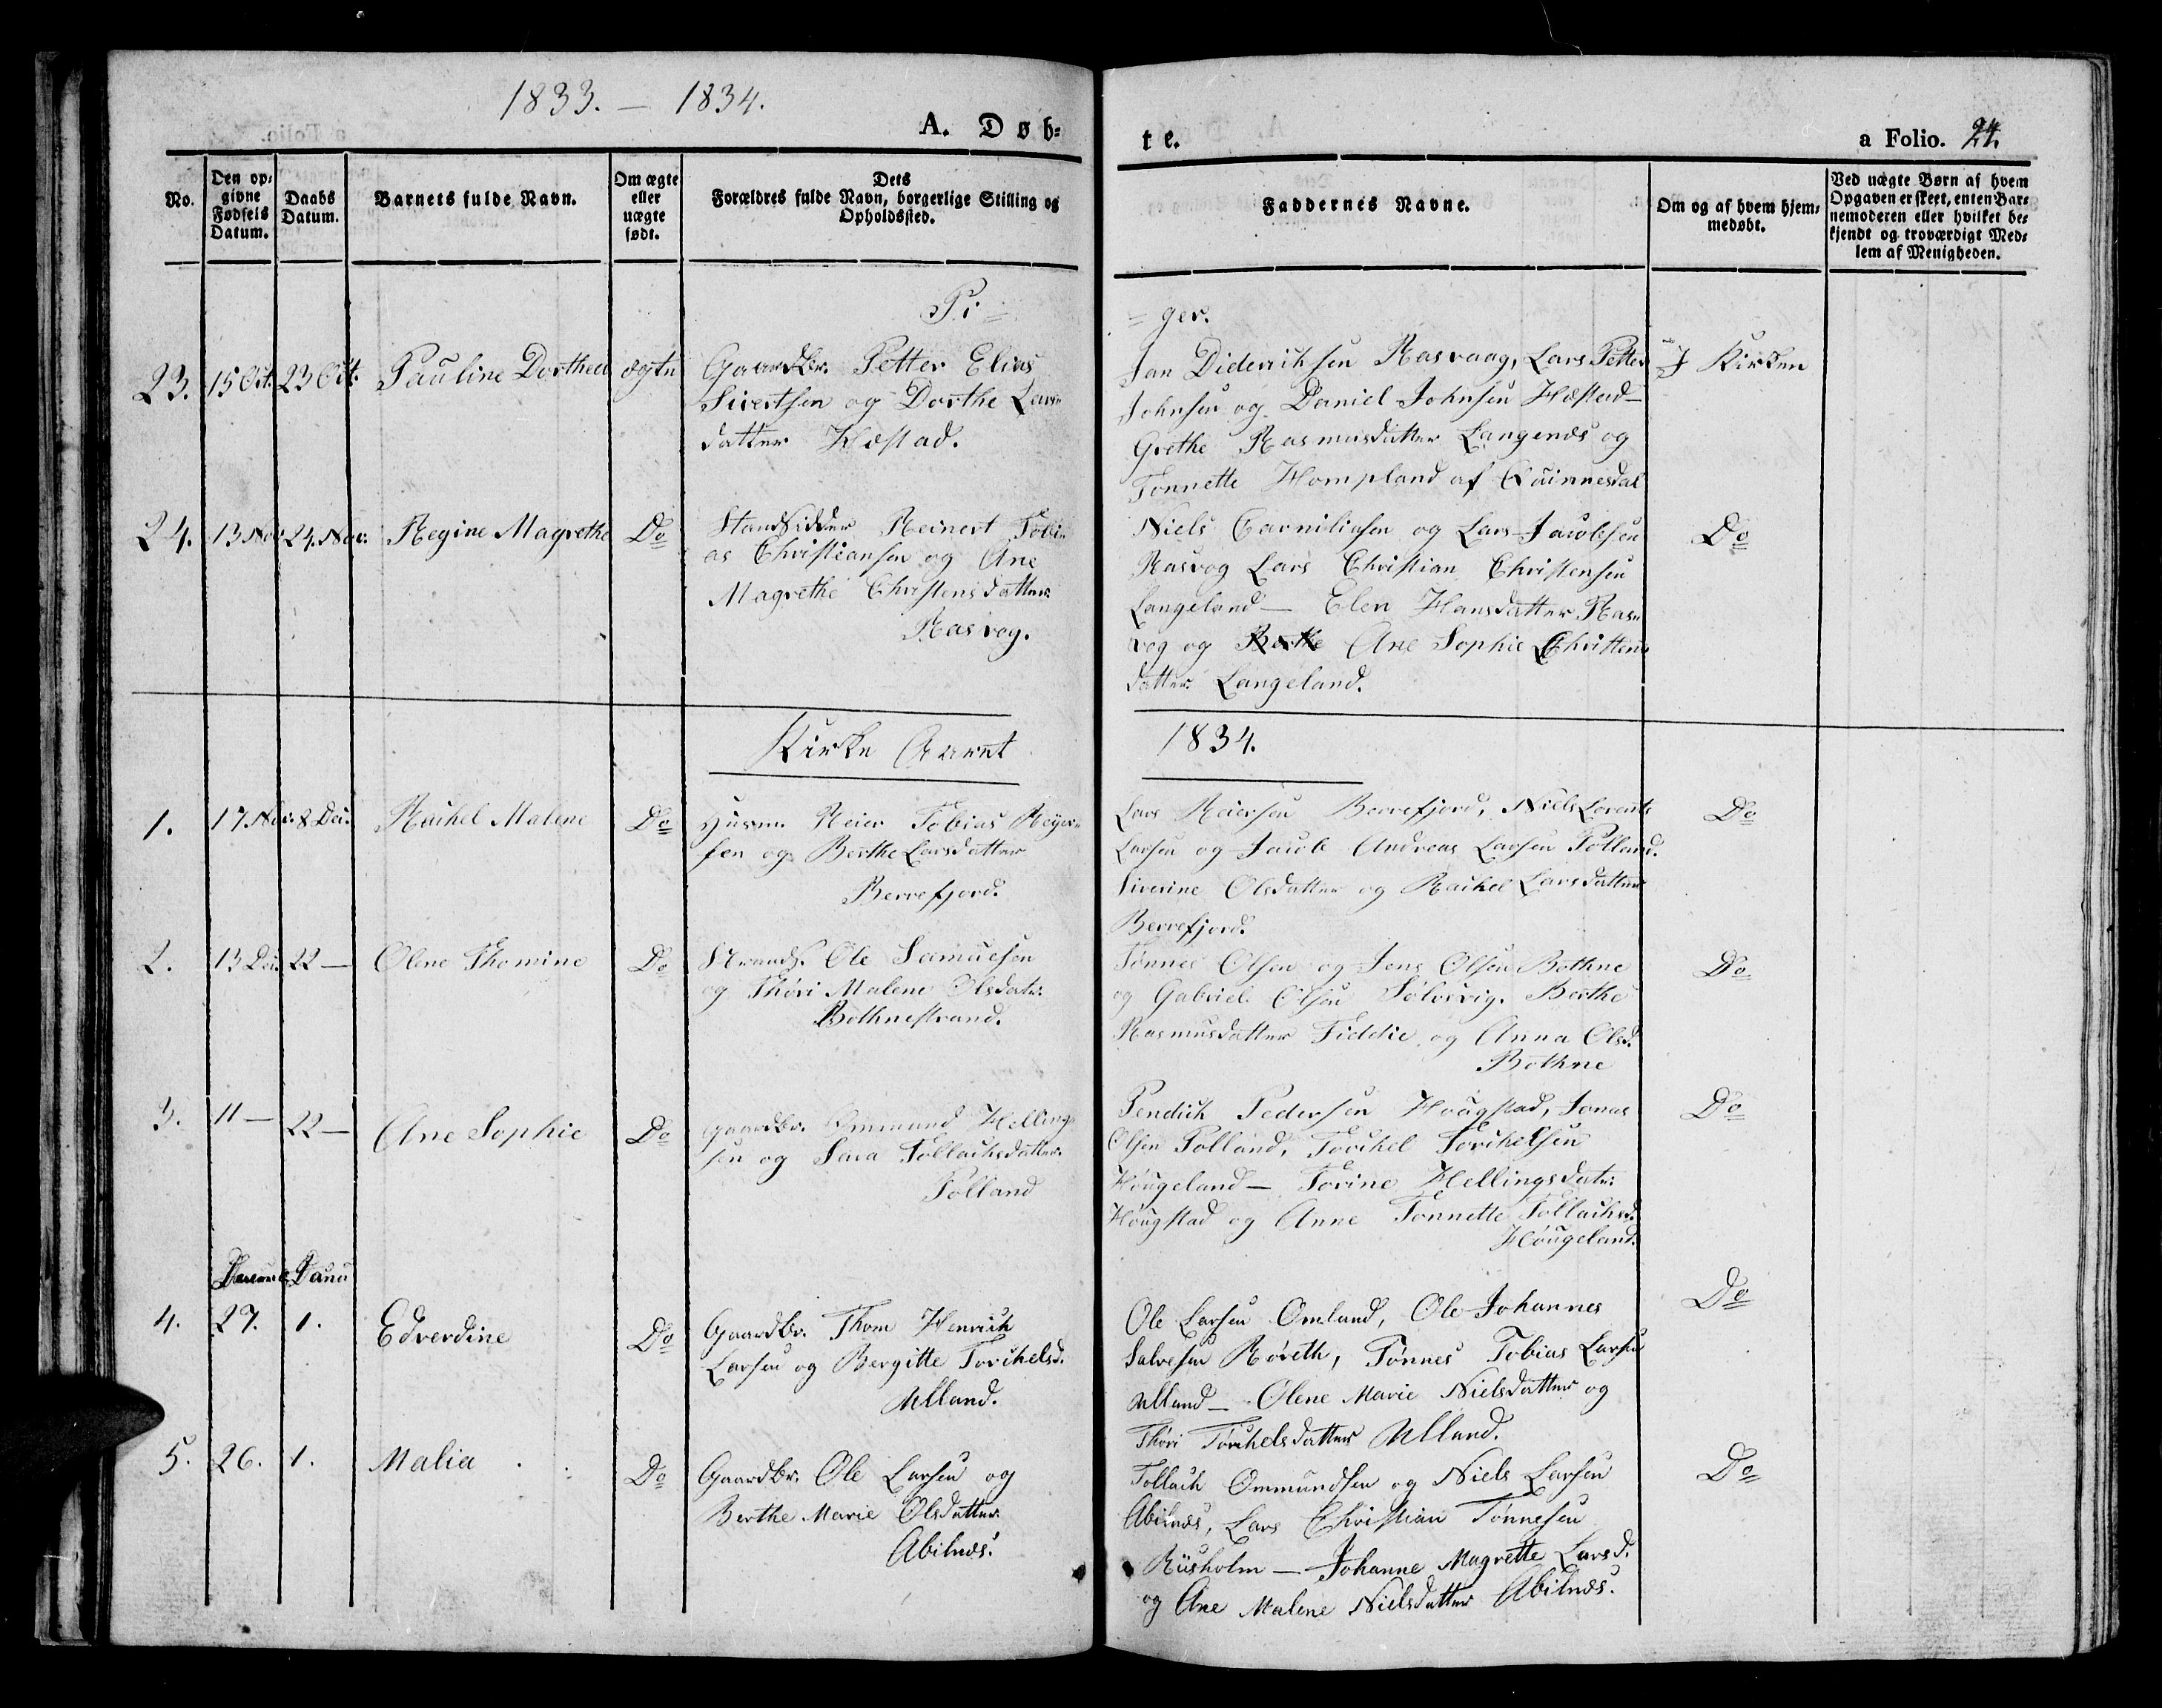 1833. — 1834.
A. Døb-
te.
a Folio. 24.
No.
Den op-
givne
Fødsels
Datum.
Daabs
Datum.
Barnets fulde Navn.
Om ægte
eller
uægte
født.
Dets
Forældres fulde Navn, borgerlige Stilling og
Opholdssted.
Faddernes Navne.
Om og af hvem hjem-
medøbt.
Ved uægte Børn af hvem
Opgaven er skeet, enten Bar-
nemoderen eller hvilket be-
kjendt og troværdigt Med-
lem af Menigheden.
Pi=
=ger.
23. 15 Oct. 23 Oct. Pauline Dorthea ægte
Gaardbr. Petter Elias
Sivertsen og Dorthe Lars
datter Hæstad.
Jan Dideriksen Rasvaag, Lars Petter
Johnsen og Daniel Johnsen Hæstad —
Grethe Rasmusdatter Langenæs og
Tonnette Hompland af Quinnesdal
I Kirken
24. 13 Nov 24. Nov. Regine Magrethe Do
Strandsidder Reinert Tobi-
as Christiansen og Ane
Magrethe Christensdatter
Rasvog.
Niels Corniliusen og Lars Jacobsen
Rasvog Lars Christian Christensen
Langeland — Elen Hansdatter Ras-
vog og Berthe Ane Sophie Christens
datter Langeland.
Do
Kirke Aaret
1834.
1. 17 Nov. 8 Dec. Rachel Malene Do
Husm. Reier Tobias Reyer-
sen og Berthe Larsdatter
Berrefjord.
Lars Reiersen Berrefjord, Niels Lorents
Larsen og Jacob Andreas Larsen Tolland.
Siverine Olsdatter og Rachel Larsdatter
Berrefjord.
Do
2. 13 Dec. 22 — Olene Thomine Do
Strands. Ole Samuesen
og Thori Malene Olsdatr.
Bothnestrand.
Tønnes Olsen og Jens Olsen Bothne
og Gabriel Olsen Sølvsvig. Berthe
Rasmusdatter Fidekie og Anna Olsd.
Bothne
Do
3. 11 — 22 — Ane Sophie Do
Gaardbr. Ommund Helling
sen og Sara Tollachsdatter
Tolland
Pendick Pedersen Hougstad, Jonas
Olsen Tolland, Torchel Torchelsen
Hougeland — Torine Hellingsdatr.
Hougstad og Anne Tonnette Tollachsd.
Hougeland.
Do
Decemb Janu
4. 27. 1. Edverdine Do
Gaardbr. Thom Henrich
Larsen og Bergitte Torchelsd.
Ulland.
Ole Larsen Omland, Ole Johannes
Salvesen Røieth, Tønnes Tobias Larsen
Ulland — Olene Marie Nielsdatter og
Thøri Torchelsdatter Ulland.
Do
5. 26. 1. Malia Do
Gaardbr. Ole Larsen og
Berthe Marie Olsdatter
Abilnæs.
Tollach Ommundsen og Niels Larsen
Abilnæs, Lars Christian Tønnesen
Riisholm — Johanne Magrette Larsd.
og Ane Malene Nielsdatter Abilnæs.
Do